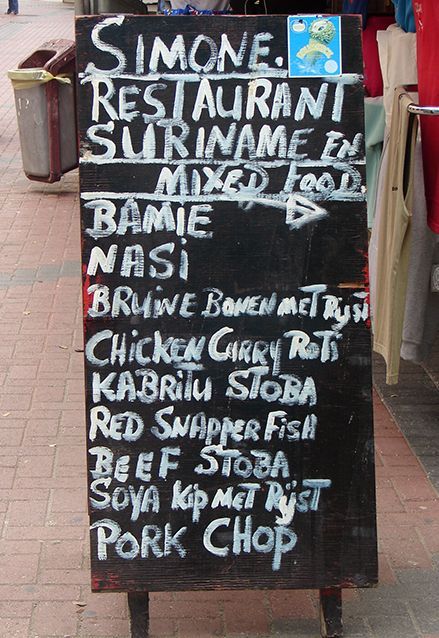 SIMONE.
RESTAURANT
SURINAME EN
MIXED FOOD.
BAMIE
NASI
BRUINE BONEN MET RIJST
CHICKEN CURRY ROTI
KABRITU STOBA
RED SNAPPER FISH
BEEF STOBA
SOYA KIP MET RIJST
PORK CHOP